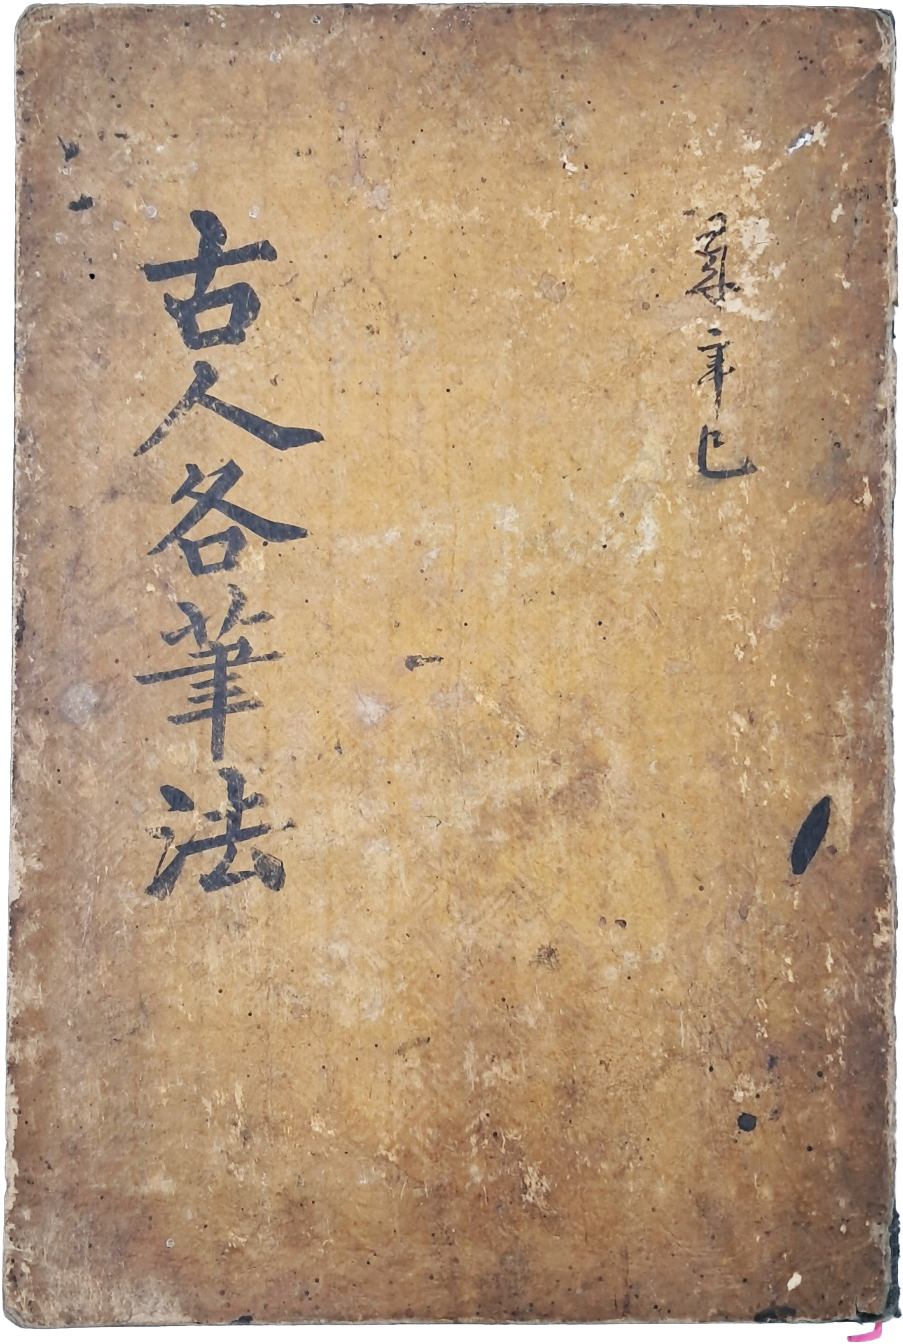 辛巳
古人各筆法